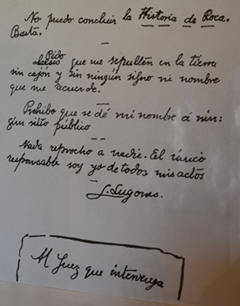 No puedo concluir la Historia de Roca.
Basta.
Pido que me sepulten en la tierra
sin cajón y sin ningún signo ni nombre
que me acuerde.
Prohibo que se dé mi nombre a nin-
gún sitio público
Nada reprocho a nadie. El único
responsable soy yo de todos mis actos
L. Lugones.
Al Juez que intervenga